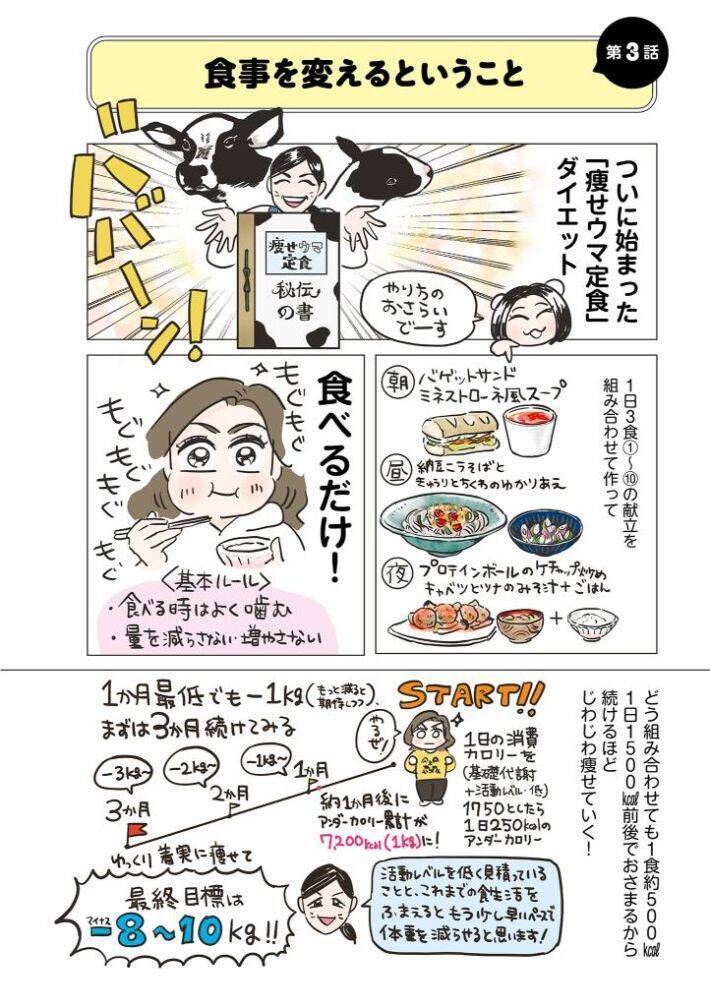 第3話
食事を変えるということ
ババーン!
ついに始まった
「痩せウマ定食」
ダイエット
痩せウマ
定食
秘伝
の書
やり方の
おさらい
でーす
1日3食①〜⑩の献立を
組み合わせて作って
朝
バゲットサンド
ミネストローネ風スープ
昼
納豆ニラそばと
きゅうりとちくわのゆかりあえ
夜
プロテインボールのケチャップ炒め
キャベツとツナのみそ汁+ごはん
+
食べるだけ!
もぐもぐ
もぐもぐ
もぐもぐ
<基本ルール>
・食べる時はよく噛む
・量を減らさない・増やさない
どう組み合わせても1食約500kcal
1日1500kcal前後でおさまるから
続けるほど
じわじわ痩せていく!
START!!
やるぜ!
1日の消費
カロリーを
(基礎代謝
+活動レベル・低)
1750としたら
1日250kcalの
アンダーカロリー
1か月最低でも−1kg(もっと減ると
期待しつつ)、
まずは3か月続けてみる
−1kg〜
1か月
−2kg〜
2か月
−3kg〜
3か月
約1か月後に
アンダーカロリー累計が
7,200kcal(1kg)に!
ゆっくり着実に痩せて
最終目標は
マイナス
−8〜10kg!!
活動レベルを低く見積っている
ことと、これまでの食生活を
ふまえると もう少し早いペースで
体重を減らせると思います!